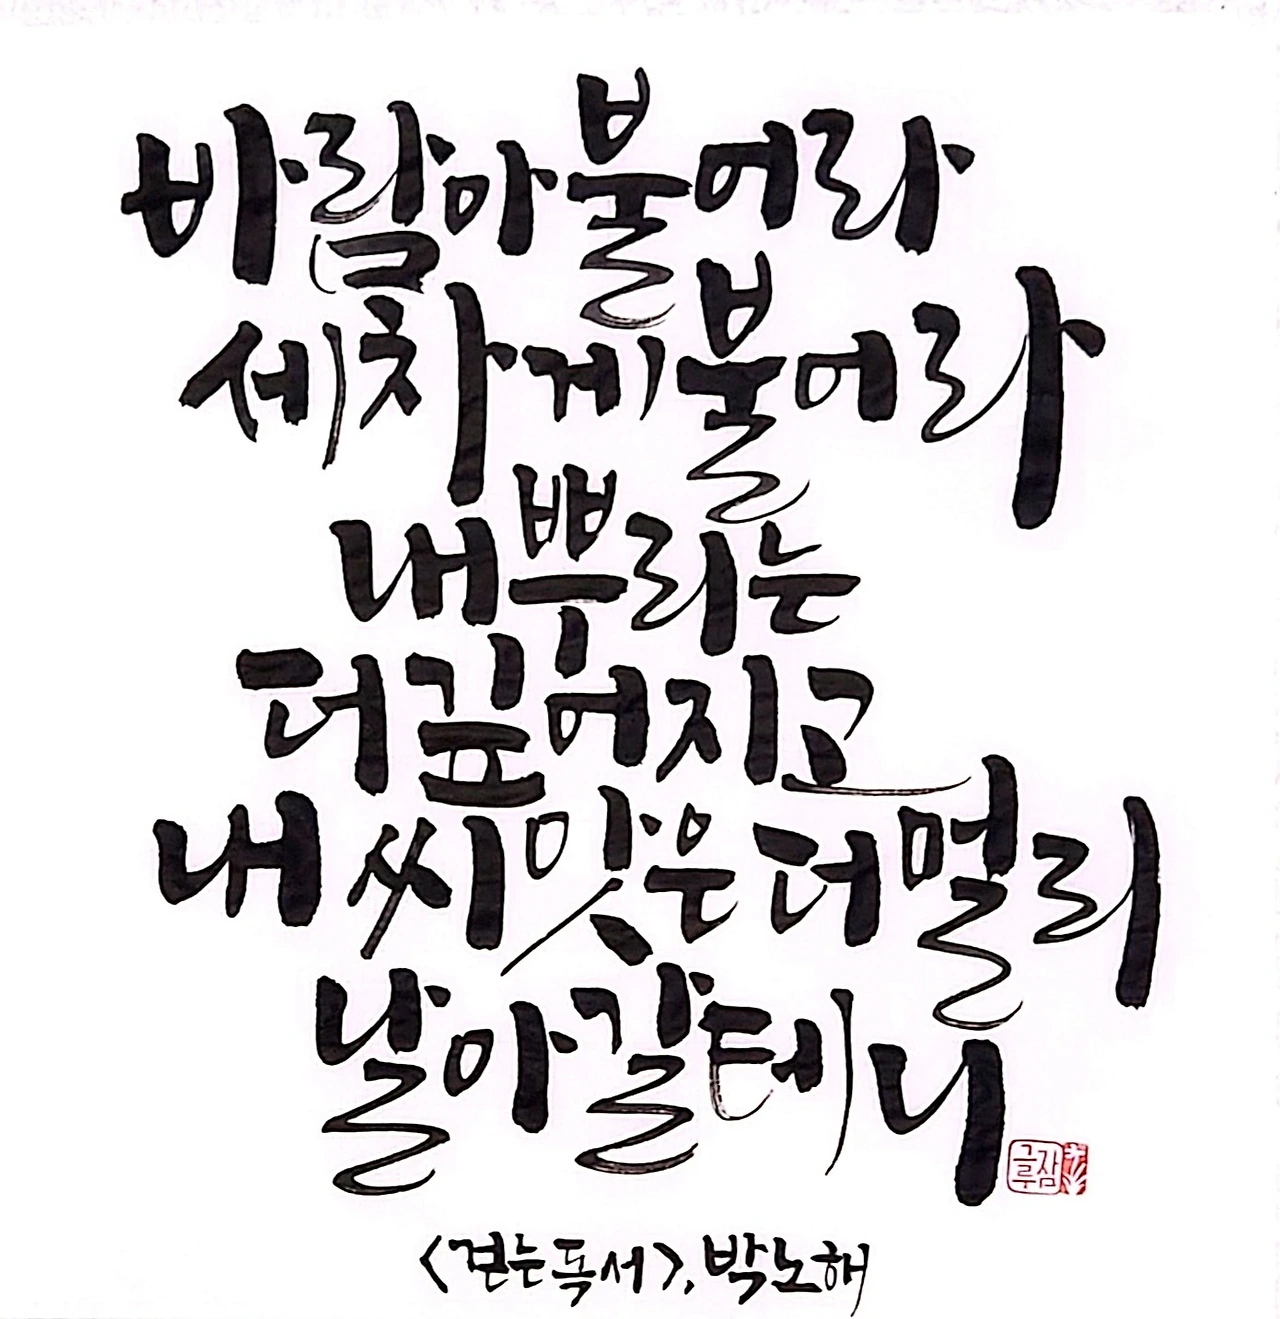 바람아 불어라
세차게 불어라
내 뿌리는
더 깊어지고
내 씨앗은 더 멀리
날아갈테니
<걷는독서>, 박노해